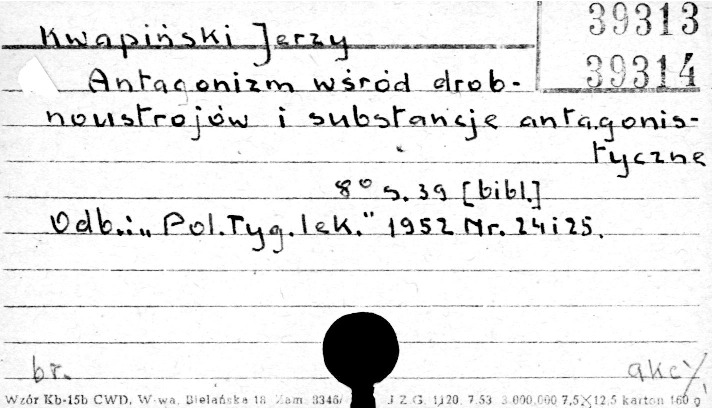 39313
Kwapiński Jerzy
39314
Antagonizm wśród drob-
noustrojów i substancje antagonis-
tyczne
8° s. 39 [bibl.]
Odb.: „Pol. Tyg. lek." 1952 Nr. 24 i 25.
br.
akc
Wzór Kb-15b CWD, W-wa, Bielańska 18 Zam. 3346/ J Z G. 1120. 7.53 3.000.000 7,5×12,5 karton 160 g